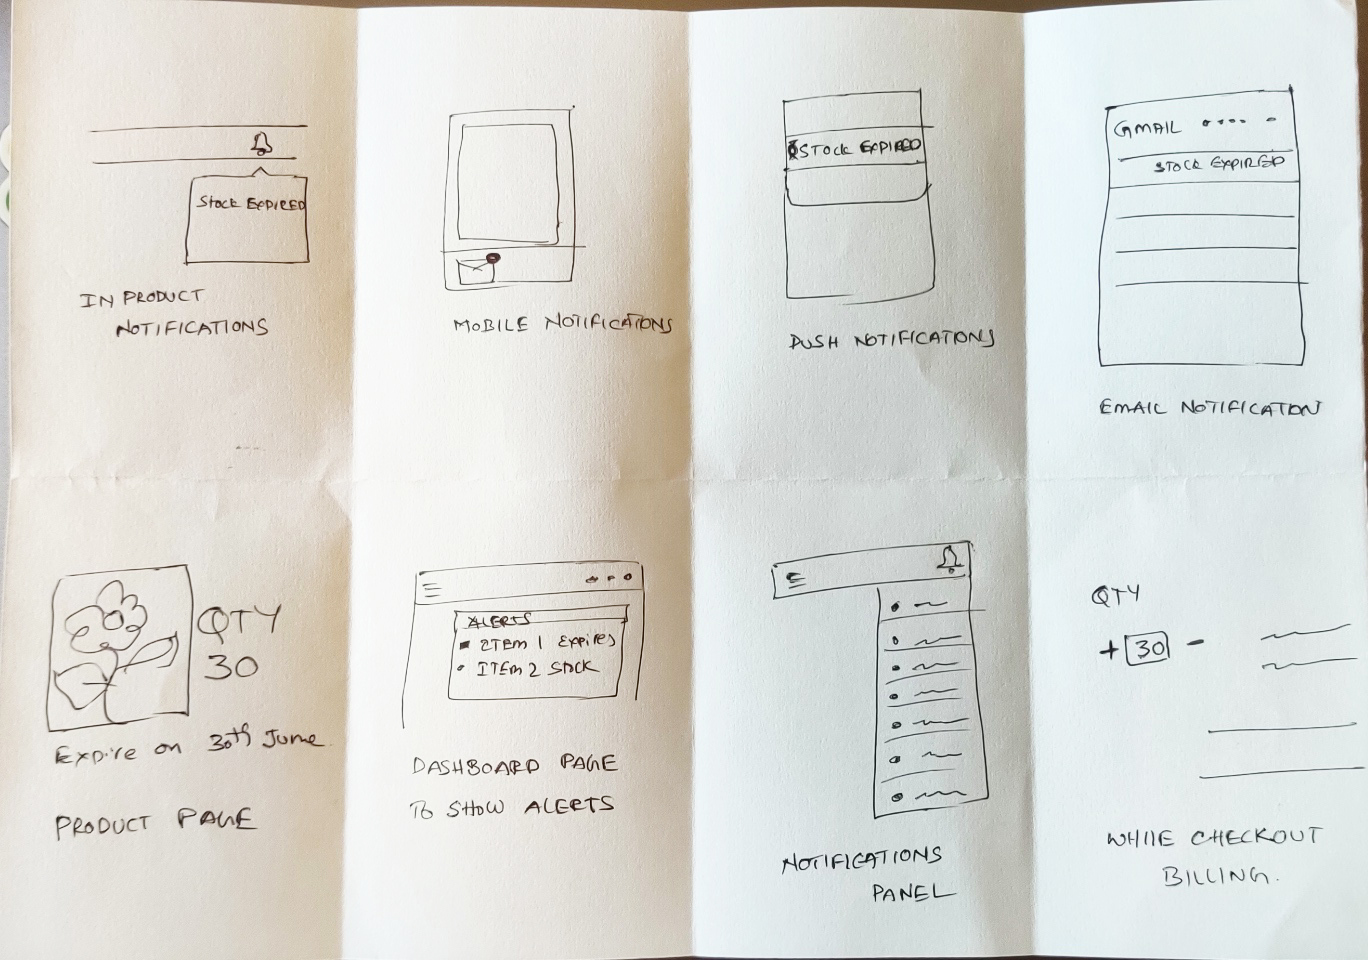 STOCK EXPIRED
IN PRODUCT
NOTIFICATIONS
MOBILE NOTIFICATIONS
STOCK EXPIRED
PUSH NOTIFICATIONS
GMAIL
STOCK EXPIRED
EMAIL NOTIFICATION
QTY
30
Expire on 30th June
PRODUCT PAGE
ALERTS
ITEM 1 EXPIRES
ITEM 2 STOCK
DASHBOARD PAGE
TO SHOW ALERTS
NOTIFICATIONS
PANEL
QTY
+ 30 -
WHILE CHECKOUT
BILLING.